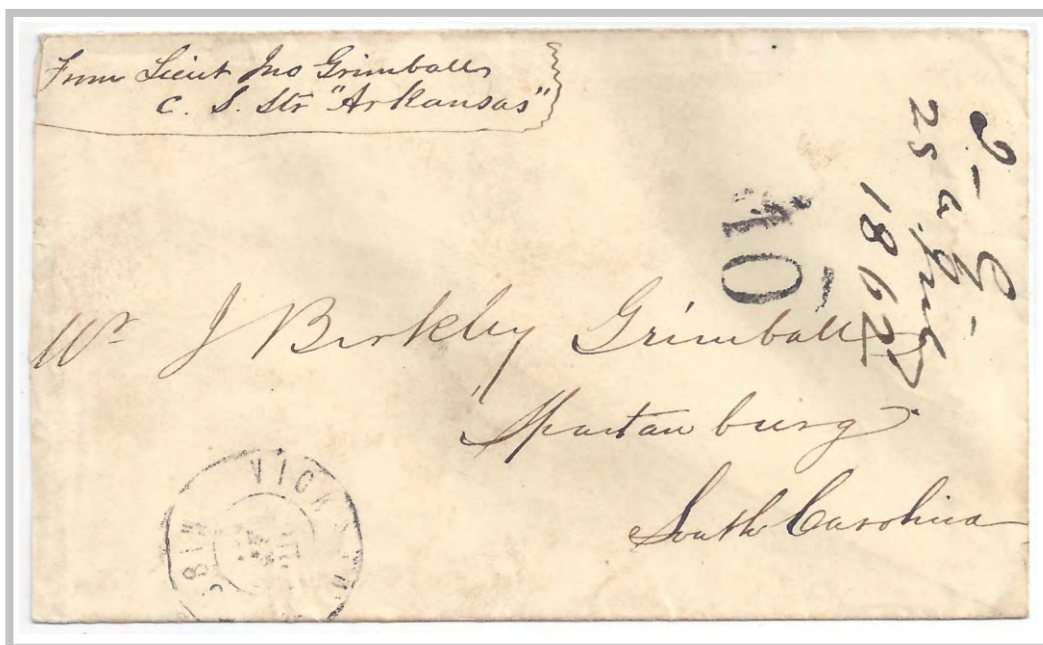 From Lieut Jno Grimball
C. S. Str "Arkansas"
J. G.
25 Augt
1862
10
Mr J Berkley Grimball
Spartanburg
South Carolina
VICKSBURG MISS